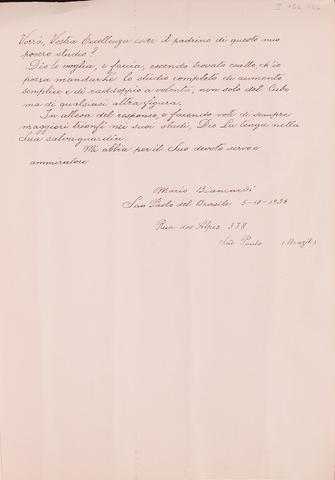 Vorrà, Vostra Eccellenza esser il padrino di questo mio
povero studio?
Dio lo voglia, e faccia, essendo trovato esatto, ch'io
possa mandarle lo studio completo di aumento
semplice e di raddoppio a volontà, non solo del Cubo
ma di qualsiasi altra figura.
In attesa del responso, e facendo voti di sempre
maggiori trionfi nei suoi studi, Dio La tenga nella
Sua salvaguardia.
Mi abbia per il Suo devoto servo e
ammiratore
Mario Biancardi
San Paolo del Brasile 5-10-1934
Rua dos Alpes 378
São Paulo (Brazil)